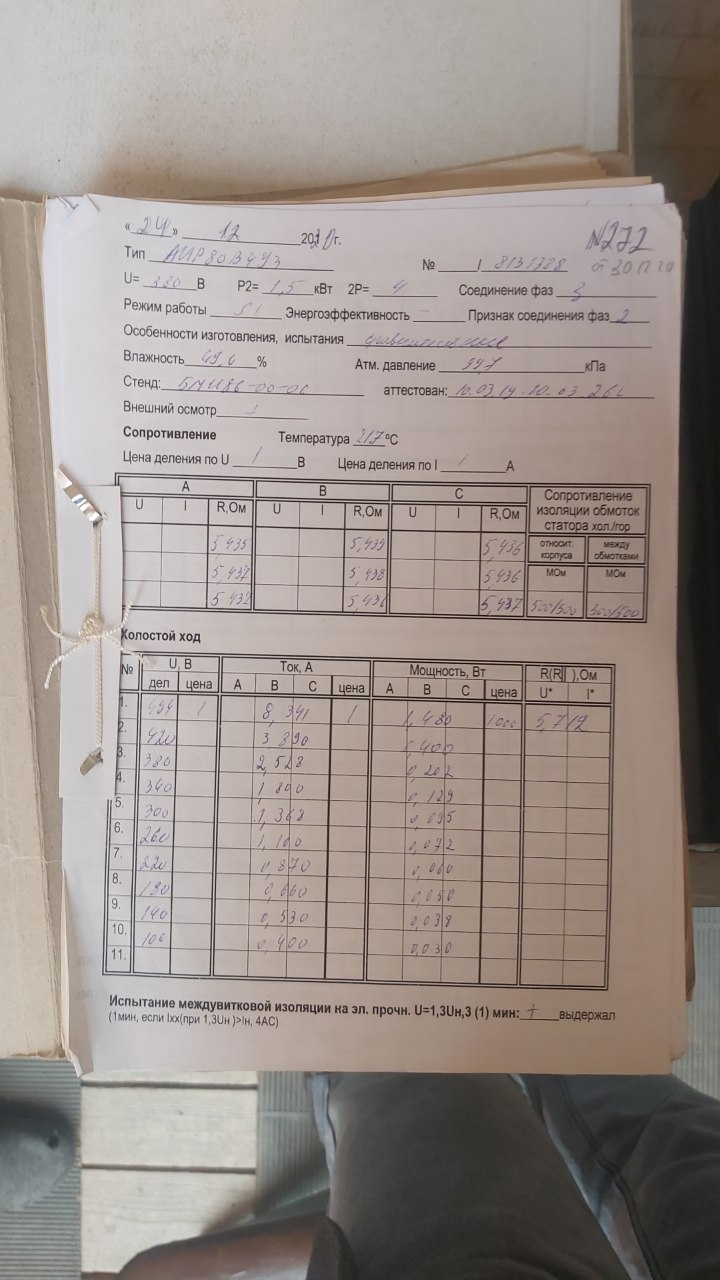 « 24 » 12 2020г.
N272
Тип АИР80В4У3 № 8131388
от 30 12 20
U= 380 В P2= 1,5 кВт 2P= 4 Соединение фаз 3
Режим работы S1 Энергоэффективность – Признак соединения фаз 2
Особенности изготовления, испытания
Влажность 49,0 % Атм. давление 997 кПа
Стенд: аттестован:
Внешний осмотр
Сопротивление Температура 21,7 °С
Цена деления по U 1 В Цена деления по I 1 А
A B C Сопротивление изоляции обмоток статора хол./гор
U I R,Ом U I R,Ом U I R,Ом относит. корпуса между обмотками
МОм МОм
5,435 5,439 5,436
5,437 5,438 5,436
5,437 500/500 500/500
Холостой ход
№ U, В Ток, А Мощность, Вт R(R|| ),Ом
дел цена А В С цена А В С цена U* I*
1. 494 1 8,341 1 1,480 1000 5,712
2. 420 3 890 400
3. 380 2,528 0,202
4. 340 1,800 0,129
5. 300 1,368 0,095
6. 260 1,100 0,072
7. 220 0,870 0,060
8. 180 0,660 0,050
9. 140 0,530 0,038
10. 100 0,400 0,030
11.
Испытание междувитковой изоляции на эл. прочн. U=1,3Uн,3 (1) мин: + выдержал
(1мин, если Iхх(при 1,3Uн )>Iн, 4АС)